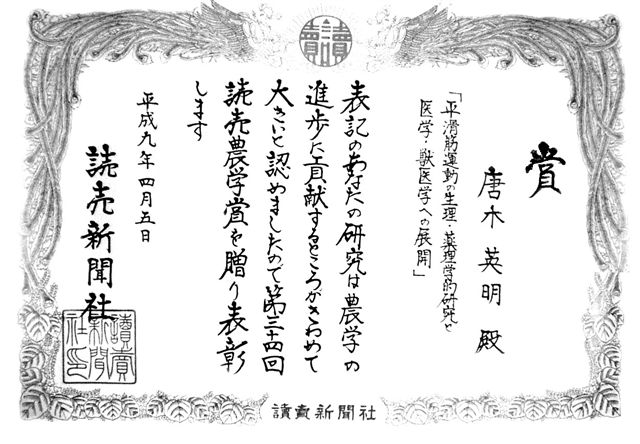 讀賣
賞
唐木英明殿
「平滑筋運動の生理・薬理学的研究と
医学・獣医学への展開」
表記のあなたの研究は農学の
進歩に貢献するところがきわめて
大きいと認めましたので第三十四回
読売農学賞を贈り表彰
します
平成九年四月五日
読売新聞社
讀賣
新聞
社印
讀賣新聞社